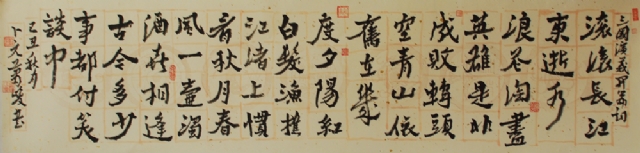 三國演義開篇詞
滚滚長江
東逝水
浪花淘盡
英雄是非
成敗轉頭
空青山依
舊在幾
度夕陽紅
白髮漁樵
江渚上慣
看秋月春
風一壺濁
酒喜相逢
古今多少
事都付笑
談中
己丑秋月